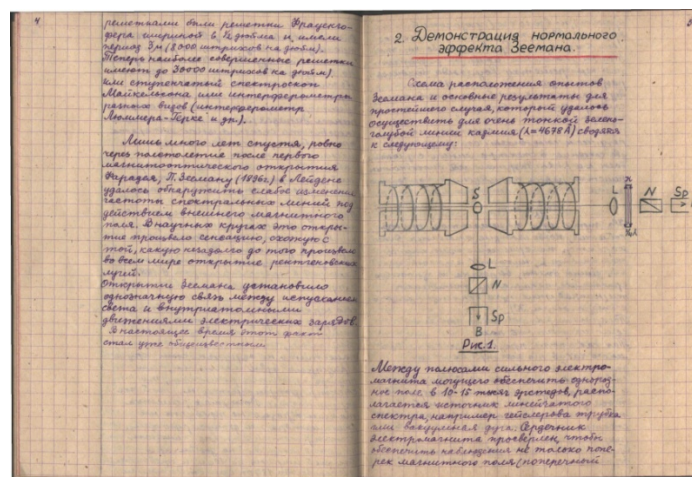 4
решетками были решетки Фраунго-
фера шириной в 1/2 дюйма и имели
период 3м (8000 штрихов на дюйм).
Теперь наиболее совершенные решетки
имеют до 30000 штрихов на дюйм
или ступенчатый спектроскоп
Майкельсона или интерферометры
разных видов (интерферометр
Люммера-Герке и др.).
Лишь много лет спустя, ровно
через полстолетие после первого
магнитооптического открытия
Фарадея, П. Зееману (1896г.) в Лейдене
удалось обнаружить слабое изменение
частоты спектральных линий под
действием внешнего магнитного
поля. В научных кругах это откры-
тие произвело сенсацию, схожую с
той, какую незадолго до того произвели
во всем мире открытие рентгеновских
лучей.
Открытие Зеемана установило
однозначную связь между испусканием
света и внутриатомными
движениями электрических зарядов.
В настоящее время этот факт
стал уже общеизвестным.
5
2. Демонстрация нормального
эффекта Зеемана.
Схема расположения опытов
Зеемана и основные результаты для
простейшего случая, который удалось
осуществить для очень тонкой зелено-
голубой линии кадмия (λ=4678 Å) сводятся
к следующему:
S
L
N
Sp
L
N
Sp
В
Рис.1.
Между полюсами сильного электро-
магнита могущего обеспечить однород-
ное поле в 10-15 тысяч эрстедов, распо-
лагается источник линейчатого
спектра, например гейслерова трубка
или вакуумная дуга. Сердечник
электромагнита просверлен, чтобы
обеспечить наблюдения не только попе-
рек магнитного поля (поперечный